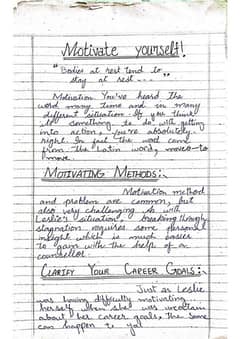 Motivate yourself!
"Bodies at rest tend to
stay at rest ..."
Motivation You've heard the
word many time and in many
different situation. If you think
it something to do with getting
into action, you're absolutely
right. In fact the word came
from the Latin word, moveo-to
move.
MOTIVATING METHODS:-
Motivation method
and problem are common, but
also very challenging. As with
Leslie's situation, breaking through
stagnation requires some personal
insight which is much easier
to gain with the help of a
counsellor.
CLARIFY YOUR CAREER GOALS:-
Just as Leslie
was having difficulty motivating
herself when she was uncertain
about her career goals, the same
can happen to you